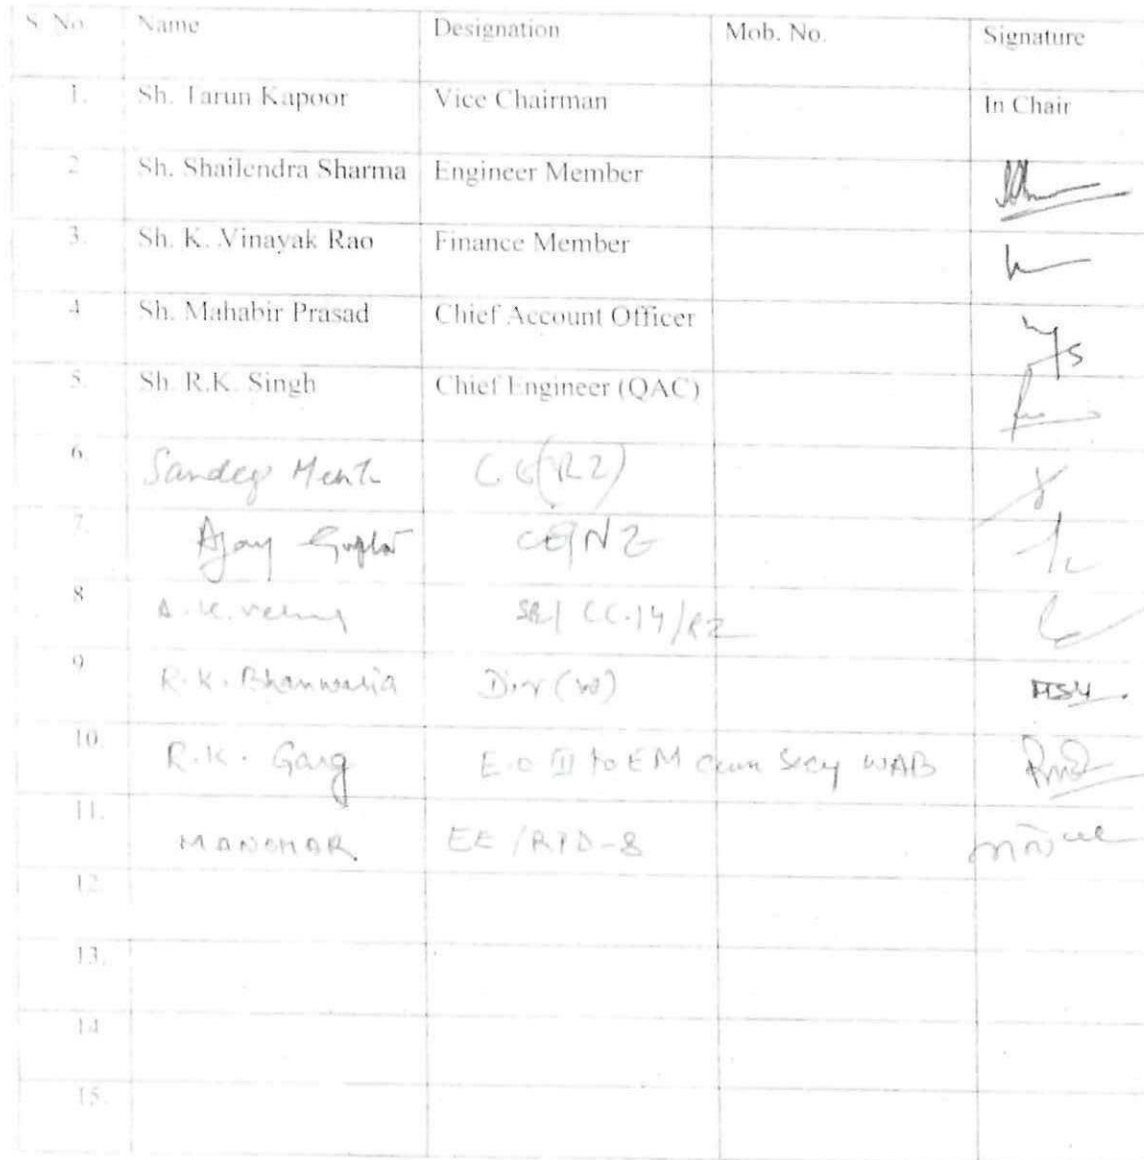 S. No. Name Designation Mob. No. Signature
1. Sh. Tarun Kapoor Vice Chairman In Chair
2 Sh. Shailendra Sharma Engineer Member
3. Sh. K. Vinayak Rao Finance Member
4 Sh. Mahabir Prasad Chief Account Officer
5. Sh. R.K. Singh Chief Engineer (QAC)
6. Sandeep
7. Ajay Gupta CE/NZ
8 A.K. SE/CC-14/RZ
9 R.K. Bhanwaria Dir (W)
10. R.K. Garg E.O III to EM cum Secy WAB
11. MANOHAR EE/RPD-8
12.
13.
14
15.